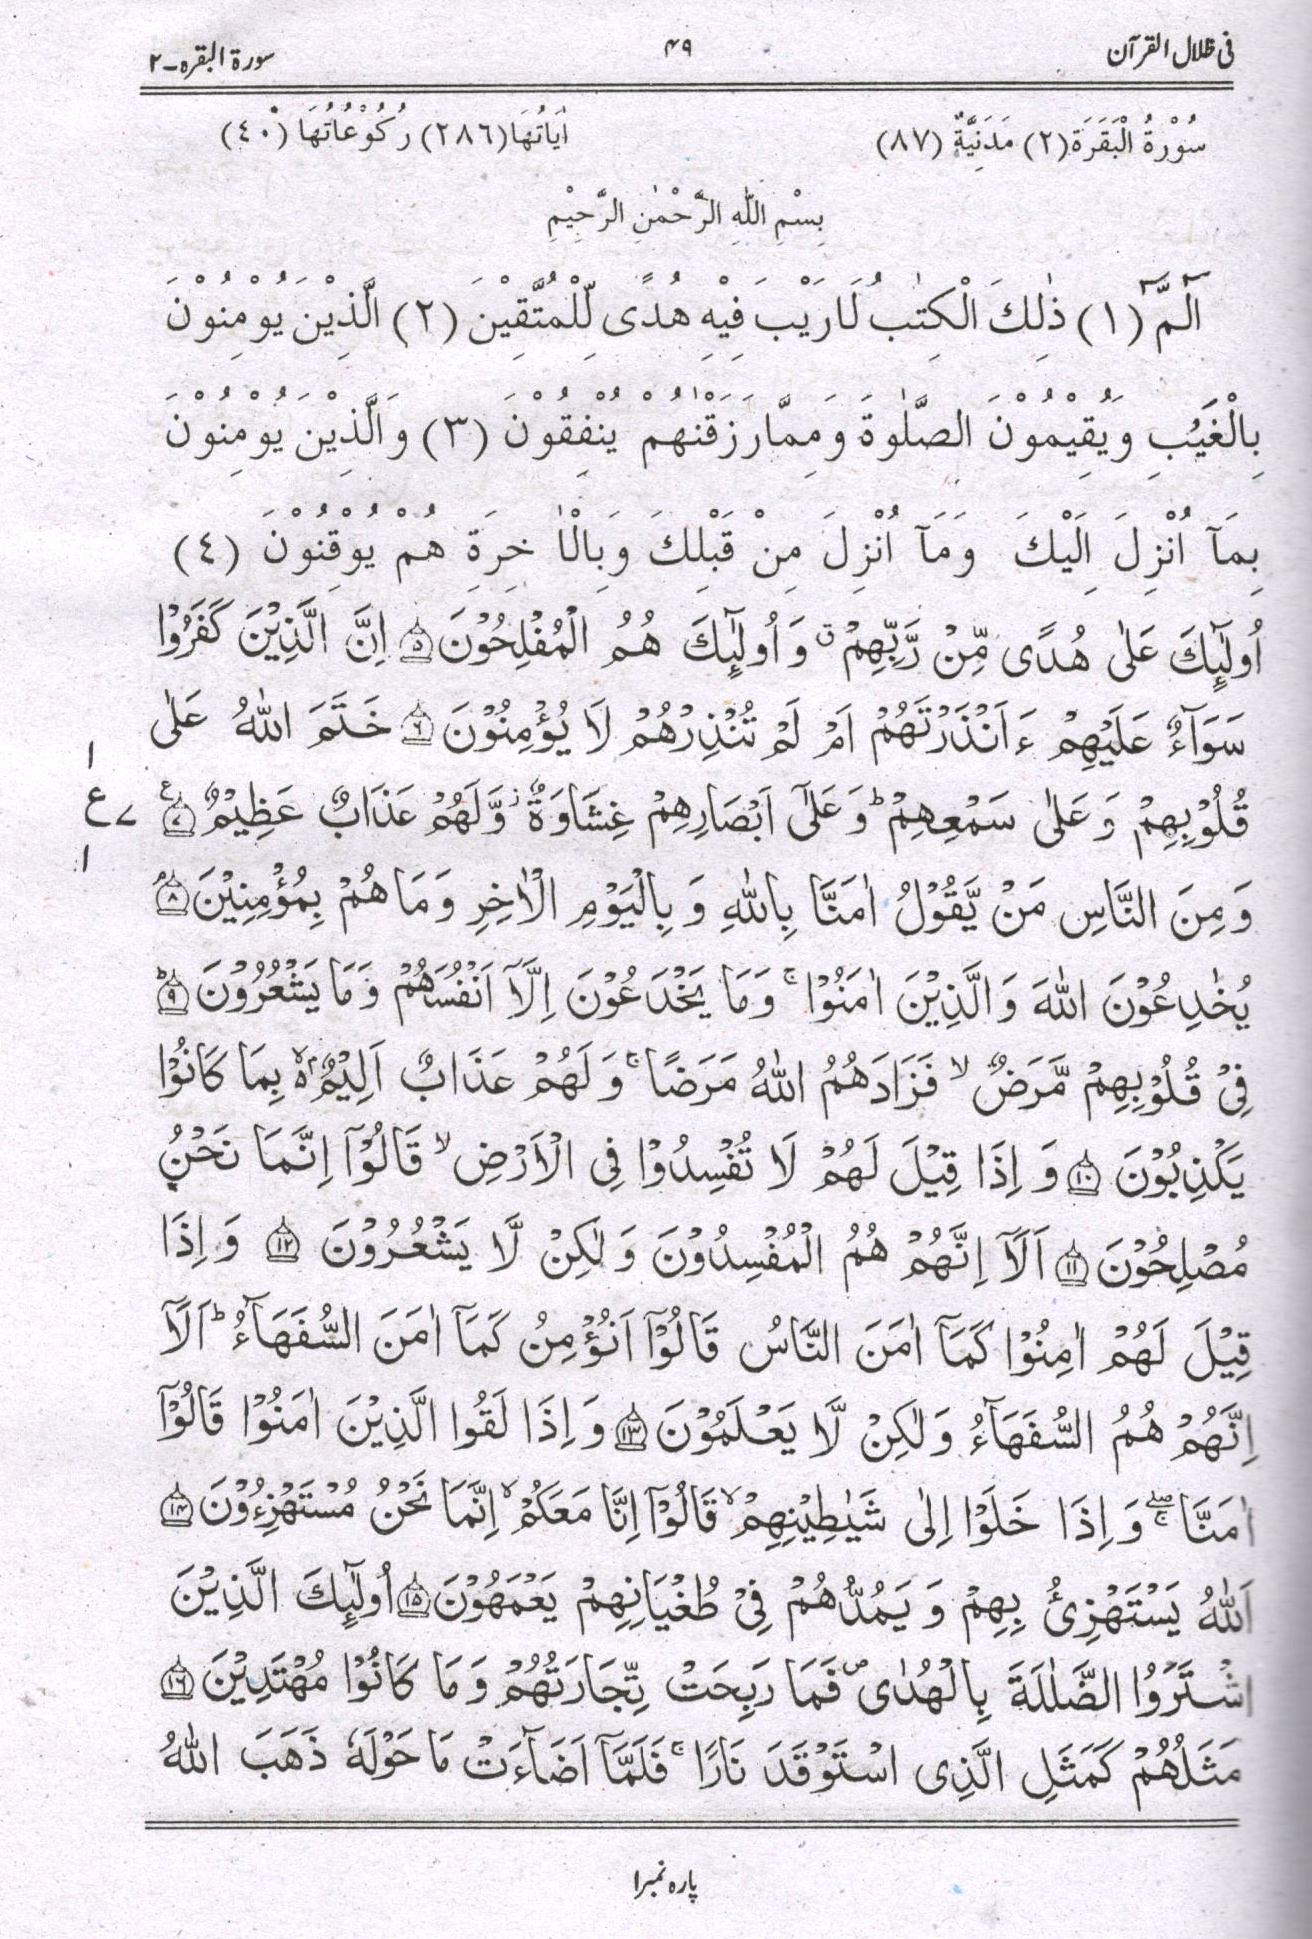 فی ظلال القرآن ۴۹ سورۃ البقرہ۔۲
سُوْرةُ الْبَقَرَة(٢) مَدَنِيَّةٌ (٨٧) اٰيَاتُهَا(٢٨٦) رُكُوْعُاتُهَا (٤٠)
بِسْمِ اللّٰهِ الرَّحْمٰنِ الرَّحِيْمِ
الٓمّٓ (١) ذٰلِكَ الْكِتٰبُ لَا رَيْبَ فِيْهِ هُدًى لِّلْمُتَّقِيْنَ (٢) الَّذِيْنَ يُوْمِنُوْنَ
بِالْغَيْبِ وَيُقِيْمُوْنَ الصَّلٰوةَ وَمِمَّا رَزَقْنٰهُمْ يُنْفِقُوْنَ (٣) وَالَّذِيْنَ يُوْمِنُوْنَ
بِمَآ اُنْزِلَ اِلَيْكَ وَمَآ اُنْزِلَ مِنْ قَبْلِكَ وَبِالْاٰ خِرَةِ هُمْ يُوْقِنُوْنَ (٤)
اُولٰٓئِكَ عَلٰى هُدًى مِّنْ رَّبِّهِمْ ۛ وَاُولٰٓئِكَ هُمُ الْمُفْلِحُوْنَ ۵ اِنَّ الَّذِيْنَ كَفَرُوْا
سَوَآءٌ عَلَيْهِمْ ءَاَنْذَرْتَهُمْ اَمْ لَمْ تُنْذِرْهُمْ لَا يُؤْمِنُوْنَ ۶ خَتَمَ اللّٰهُ عَلٰى
قُلُوْبِهِمْ وَعَلٰى سَمْعِهِمْ ؕ وَعَلٰٓى اَبْصَارِهِمْ غِشَاوَةٌ ؗ وَّلَهُمْ عَذَابٌ عَظِيْمٌ ۷ ع
وَمِنَ النَّاسِ مَنْ يَّقُوْلُ اٰمَنَّا بِاللّٰهِ وَبِالْيَوْمِ الْاٰخِرِ وَمَا هُمْ بِمُؤْمِنِيْنَ ۘ ۸
يُخٰدِعُوْنَ اللّٰهَ وَالَّذِيْنَ اٰمَنُوْا ۚ وَمَا يَخْدَعُوْنَ اِلَّآ اَنْفُسَهُمْ وَمَا يَشْعُرُوْنَ ؕ ۹
فِيْ قُلُوْبِهِمْ مَّرَضٌ ۙ فَزَادَهُمُ اللّٰهُ مَرَضًا ۚ وَلَهُمْ عَذَابٌ اَلِيْمٌ ۢ ۙ بِمَا كَانُوْا
يَكْذِبُوْنَ ۱۰ وَاِذَا قِيْلَ لَهُمْ لَا تُفْسِدُوْا فِى الْاَرْضِ ۙ قَالُوْٓا اِنَّمَا نَحْنُ
مُصْلِحُوْنَ ۱۱ اَلَآ اِنَّهُمْ هُمُ الْمُفْسِدُوْنَ وَلٰكِنْ لَّا يَشْعُرُوْنَ ۱۲ وَاِذَا
قِيْلَ لَهُمْ اٰمِنُوْا كَمَآ اٰمَنَ النَّاسُ قَالُوْٓا اَنُؤْمِنُ كَمَآ اٰمَنَ السُّفَهَآءُ ؕ اَلَآ
اِنَّهُمْ هُمُ السُّفَهَآءُ وَلٰكِنْ لَّا يَعْلَمُوْنَ ۱۳ وَاِذَا لَقُوا الَّذِيْنَ اٰمَنُوْا قَالُوْٓا
اٰمَنَّا ۖۚ وَاِذَا خَلَوْا اِلٰى شَيٰطِيْنِهِمْ ۙ قَالُوْٓا اِنَّا مَعَكُمْ ۙ اِنَّمَا نَحْنُ مُسْتَهْزِءُوْنَ ۱۴
اَللّٰهُ يَسْتَهْزِئُ بِهِمْ وَيَمُدُّهُمْ فِيْ طُغْيَانِهِمْ يَعْمَهُوْنَ ۱۵ اُولٰٓئِكَ الَّذِيْنَ
اشْتَرَوُا الضَّلٰلَةَ بِالْهُدٰى ۪ فَمَا رَبِحَتْ تِّجَارَتُهُمْ وَمَا كَانُوْا مُهْتَدِيْنَ ۱۶
مَثَلُهُمْ كَمَثَلِ الَّذِى اسْتَوْقَدَ نَارًا ۚ فَلَمَّآ اَضَآءَتْ مَا حَوْلَهٗ ذَهَبَ اللّٰهُ
۱
ع ۷
۱
پارہ نمبر۱